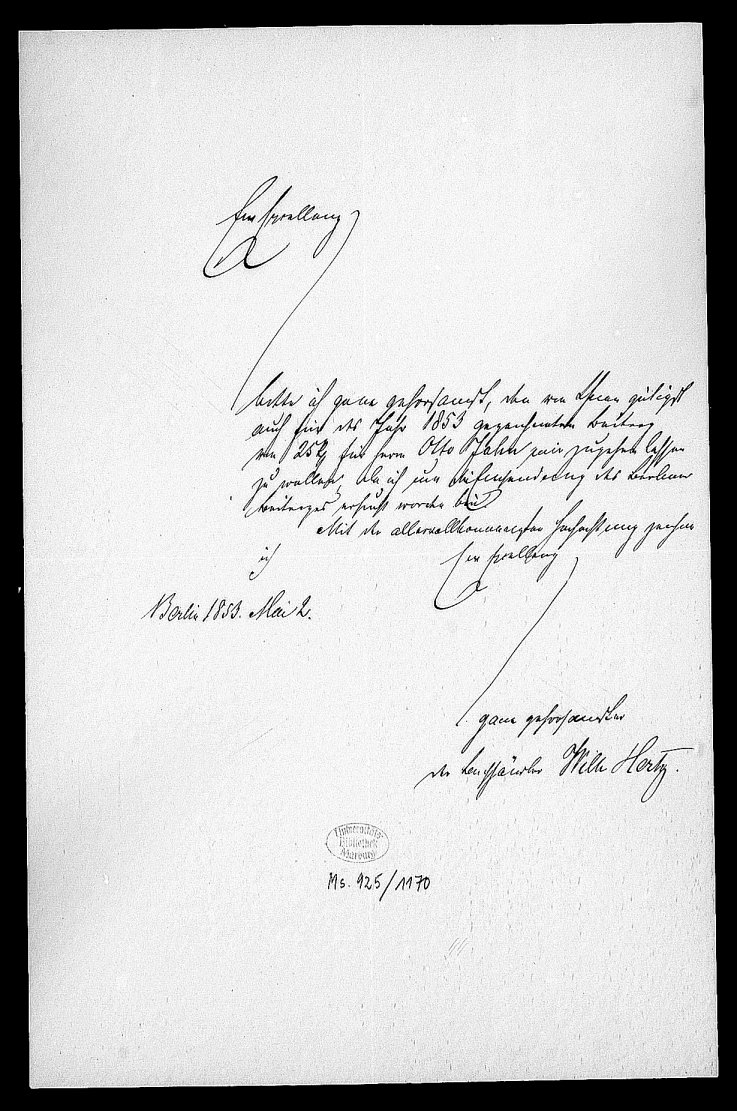 Ew Excellenz
bitte ich ganz gehorsamst, den von Ihnen gütigst
auch für das Jahr 1853 gezeichneten Beitrag
von 25 für Herrn Otto Jahn mir zugehen lassen
zu wollen, da ich um die Einsendung des Berliner
Beitrages ersucht worden bin.
Mit der allervollkommensten Hochachtung zeichne
ich Ew Excellenz
Berlin 1853. Mai 2.
ganz gehorsamster
der Buchhändler Wilh Hertz.
Universitäts-
Bibliothek
Marburg
Ms. 925/1170